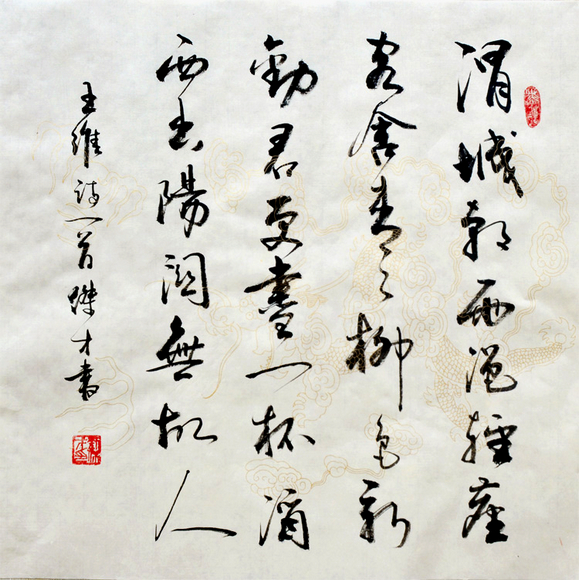 渭城朝雨浥輕塵
客舍青々柳色新
勸君更盡一杯酒
西出陽関無故人
王維詩一首傑才書